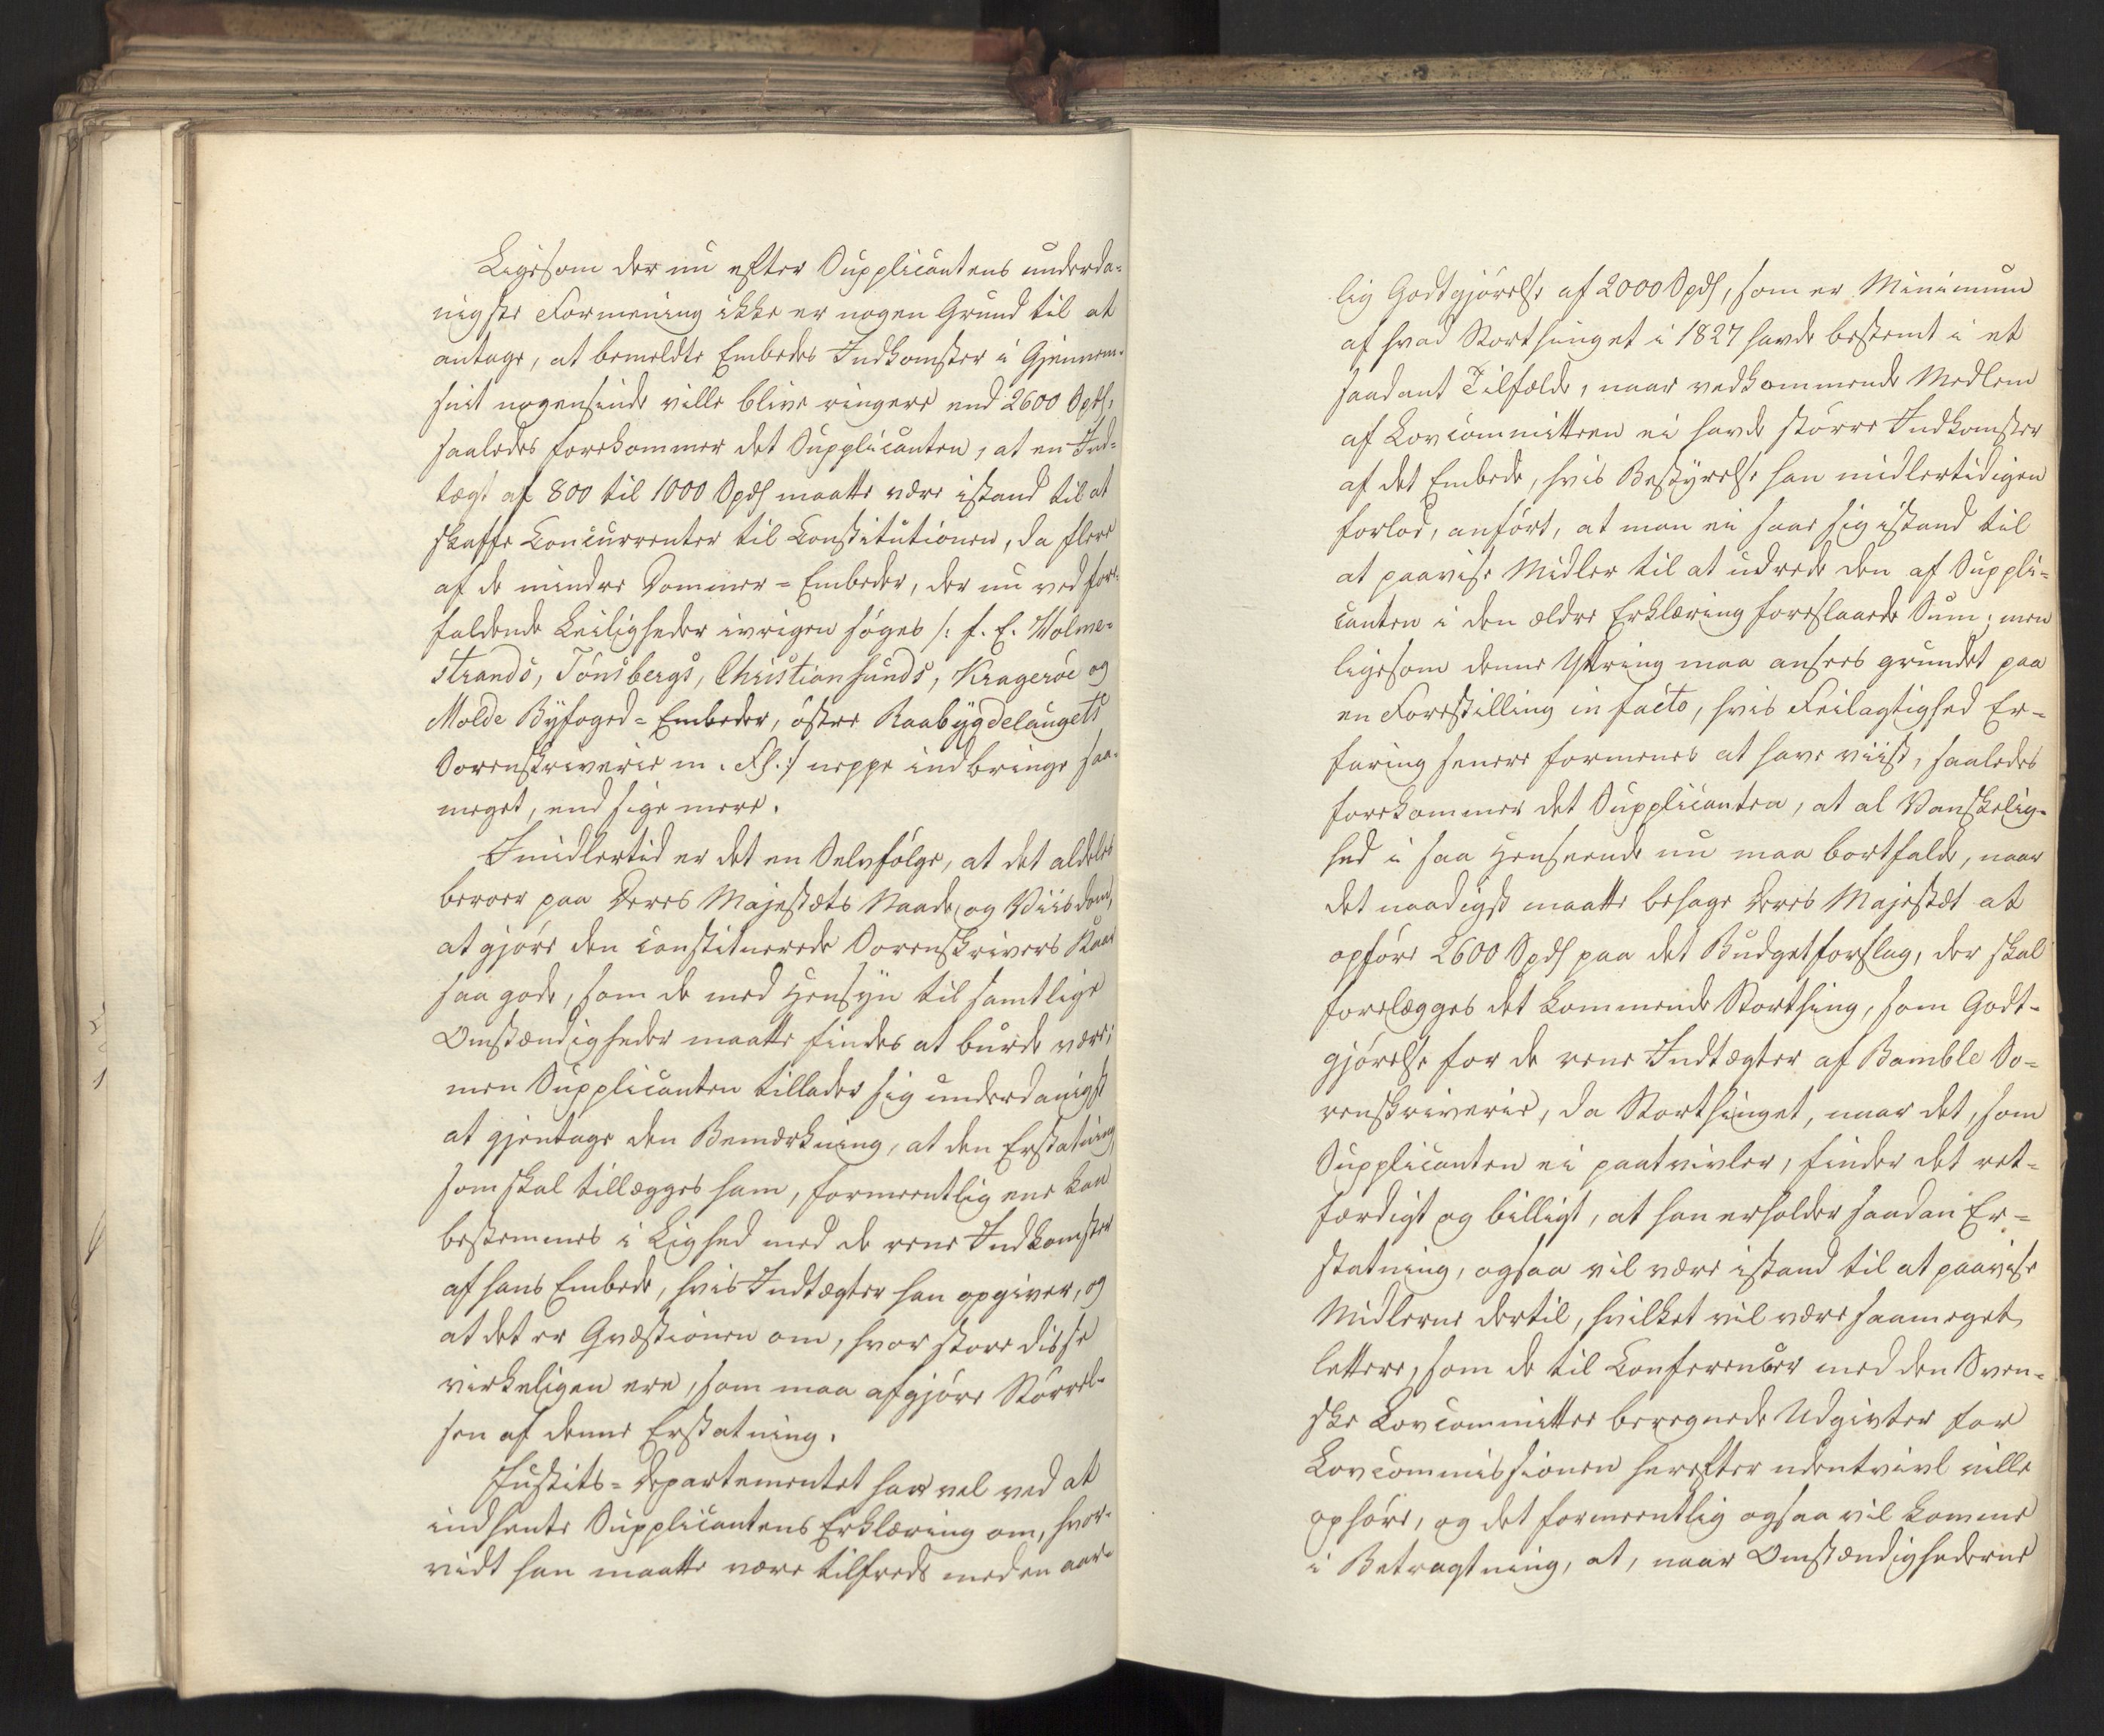 Ligesom der nu efter Supplicantens underda-
nigste Formening ikke er nogen Grund til at
antage, at bemeldte Embedes Indkomster i Gjennem-
snit nogensinde ville blive ringere end 2600 Spds,
saaledes forekommer det Supplicanten, at en Ind-
tægt af 800 til 1000 Spds maatte være istand til at
skaffe Concurrenter til Constitutionen, da flere
af de mindre Dommer-Embeder, der nu ved fore-
faldende Leiligheder ivrigen søges /: f. E. Holme-
strands, Tönsbergs, Christiansunds, Kragerøe og
Molde Byfoged-Embeder, östre Raabygdelaugets
Sorenskriverie m. Fl. :/ neppe indbringe saa-
meget, end sige mere.
Imidlertid er det en Selvfølge, at det aldeles
beroer paa Deres Majestæts Naade og Viisdom,
at gjøre den constituerede Sorenskrivers Kaar
saa gode, som de med Hensyn til samtlige
Omstændigheder maatte findes at burde være;
men Supplicanten tillader sig underdanigst
at gjentage den Bemærkning, at den Erstatning
som skal tillægges ham, formeentlig ene kan
bestemmes i Lighed med de rene Indkomster
af hans Embede, hvis Indtægter han opgiver, og
at det er Qvæstionen om, hvor store disse
virkeligen ere, som maa afgjøre Størrel-
sen af denne Erstatning.
Justits-Departementet har vel ved at
indhente Supplicantens Erklæring om, hvor-
vidt han maatte være tilfreds med en aar-
lig Godtgjörelse af 2000 Spds, som er Minimum
af hvad Storthinget i 1827 havde bestemt i et
saadant Tilfælde, naar vedkommende Medlem
af Lovcommitteen ei havde större Indkomster
af det Embede, hvis Bestyrelse han midlertidigen
forlod, anfört, at man ei saae sig istand til
at paavise Midler til at udrede den af Suppli-
canten i den ældre Erklæring foreslaaede Sum; men
ligesom denne Yttring maa ansees grundet paa
en Forestilling in facto, hvis Feilagtighed Er-
faring senere formenes at have viist, saaledes
forekommer det Supplicanten, at al Vanskelig-
hed i saa Henseende nu maa bortfalde, naar
det naadigst maatte behage Deres Majestæt at
opføre 2600 Spds paa det Budgetforslag, der skal
forelægges det kommende Storthing, som Godt-
gjörelse for de rene Indtægter af Bamble So-
renskriverie, da Storthinget, naar det, som
Supplicanten ei paatvivler, finder det ret-
færdigt og billigt, at han erholder saadan Er-
statning, ogsaa vil være istand til at paavise
Midlerne dertil, hvilket vil være saameget
lettere, som de til Conferencer med den Sven-
ske Lovcommittee beregnede Udgivter for
Lovcommissionen herefter udentvivl ville
ophøre, og det formeentlig ogsaa vil komme
i Betragtning, at, naar Omstændighederne